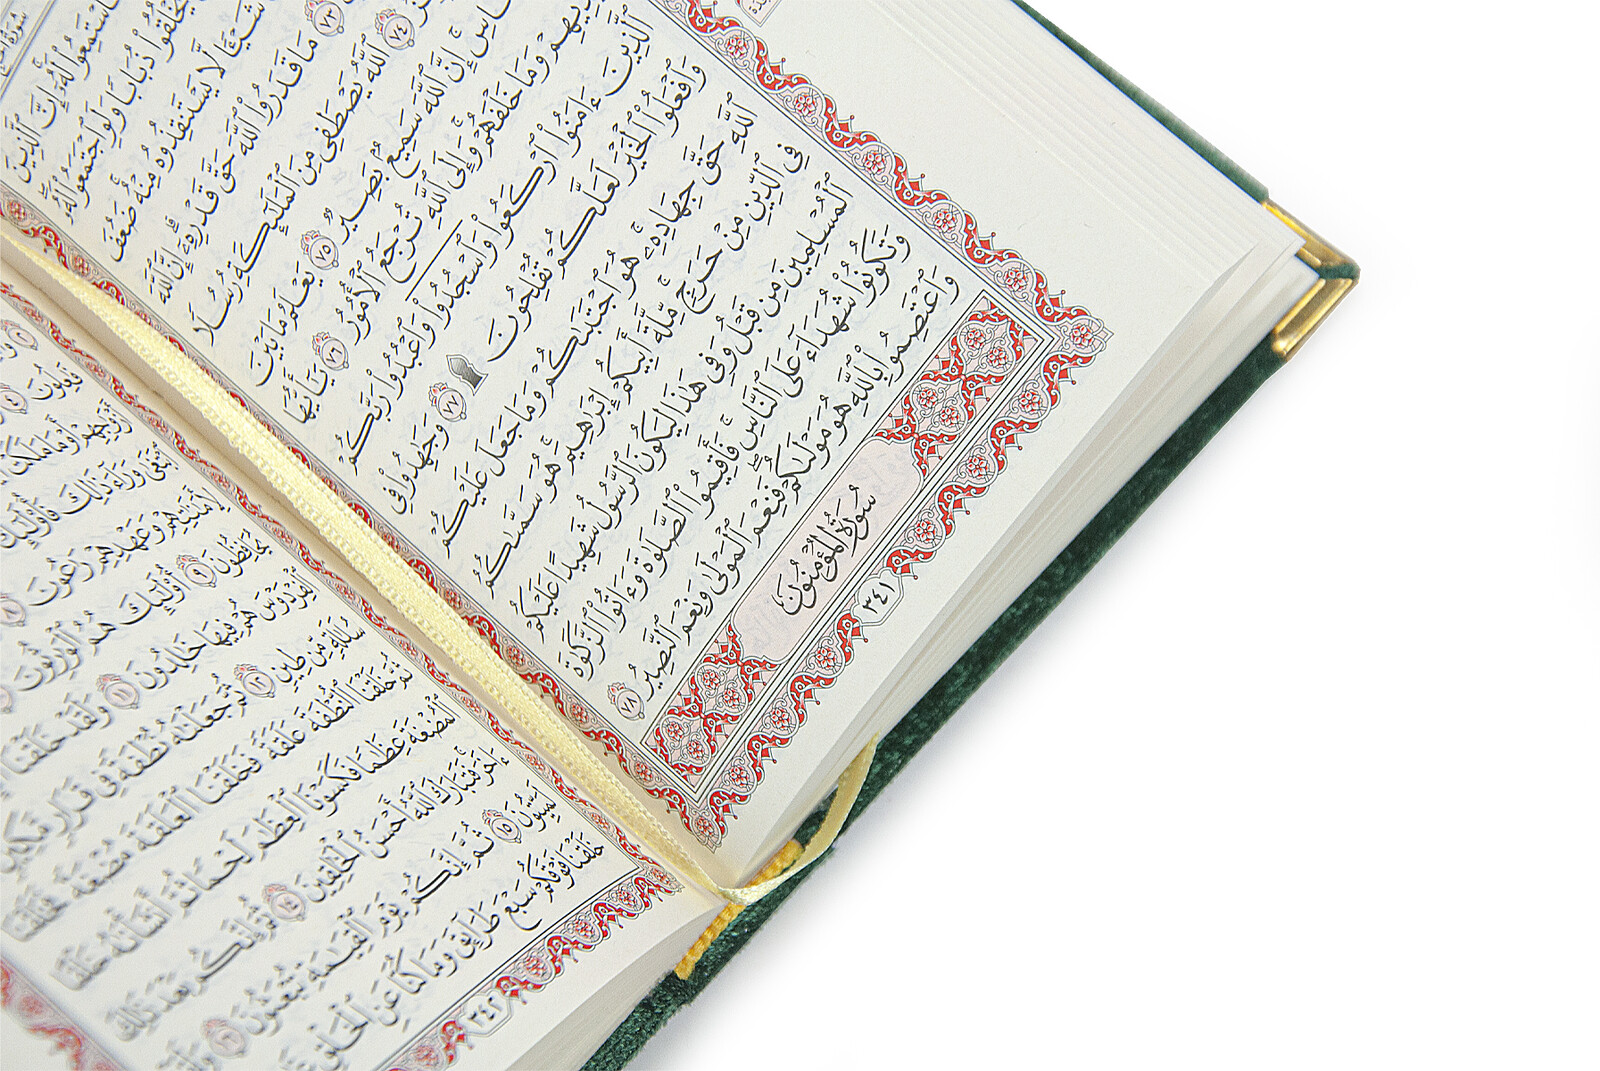 سُورَةُ الحَجِّ
فَاسْتَمِعُوا۟ لَهُۥٓ إِنَّ ٱلَّذِينَ
يَخْلُقُوا۟ ذُبَابًا وَلَوِ ٱجْتَمَعُوا۟ لَهُۥ
شَيْـًٔا لَّا يَسْتَنقِذُوهُ مِنْهُ ضَعُفَ
٧٣ مَا قَدَرُوا۟ ٱللَّهَ حَقَّ قَدْرِهِۦٓ إِنَّ ٱللَّهَ
٧٤ ٱللَّهُ يَصْطَفِى مِنَ ٱلْمَلَٰٓئِكَةِ رُسُلًا
إِنَّ ٱللَّهَ سَمِيعٌۢ بَصِيرٌ ٧٥ يَعْلَمُ مَا بَيْنَ
وَمَا خَلْفَهُمْ وَإِلَى ٱللَّهِ تُرْجَعُ ٱلْأُمُورُ ٧٦ يَٰٓأَيُّهَا
ٱلَّذِينَ ءَامَنُوا۟ ٱرْكَعُوا۟ وَٱسْجُدُوا۟ وَٱعْبُدُوا۟ رَبَّكُمْ
وَٱفْعَلُوا۟ ٱلْخَيْرَ لَعَلَّكُمْ تُفْلِحُونَ ۩ ٧٧ وَجَٰهِدُوا۟ فِى
ٱللَّهِ حَقَّ جِهَادِهِۦ هُوَ ٱجْتَبَىٰكُمْ وَمَا جَعَلَ عَلَيْكُمْ
فِى ٱلدِّينِ مِنْ حَرَجٍ مِّلَّةَ أَبِيكُمْ إِبْرَٰهِيمَ هُوَ سَمَّىٰكُمُ
ٱلْمُسْلِمِينَ مِن قَبْلُ وَفِى هَٰذَا لِيَكُونَ ٱلرَّسُولُ شَهِيدًا عَلَيْكُمْ
وَتَكُونُوا۟ شُهَدَآءَ عَلَى ٱلنَّاسِ فَأَقِيمُوا۟ ٱلصَّلَوٰةَ وَءَاتُوا۟ ٱلزَّكَوٰةَ
وَٱعْتَصِمُوا۟ بِٱللَّهِ هُوَ مَوْلَىٰكُمْ فَنِعْمَ ٱلْمَوْلَىٰ وَنِعْمَ ٱلنَّصِيرُ ٧٨
سُورَةُ المُؤْمِنُونَ
٣٤١
فَٰعِلُونَ ٤
أَزْوَٰجِهِمْ أَوْ مَا مَلَكَتْ
ٱبْتَغَىٰ وَرَآءَ ذَٰلِكَ فَأُو۟لَٰٓئِكَ
لِأَمَٰنَٰتِهِمْ وَعَهْدِهِمْ رَٰعُونَ ٨
يُحَافِظُونَ ٩ أُو۟لَٰٓئِكَ هُمُ ٱلْوَٰرِثُونَ
ٱلْفِرْدَوْسَ هُمْ فِيهَا خَٰلِدُونَ ١١ وَلَقَدْ خَلَقْنَا
سُلَٰلَةٍ مِّن طِينٍ ١٢ ثُمَّ جَعَلْنَٰهُ نُطْفَةً فِى قَرَارٍ مَّكِينٍ
ثُمَّ خَلَقْنَا ٱلنُّطْفَةَ عَلَقَةً فَخَلَقْنَا ٱلْعَلَقَةَ مُضْغَةً فَخَلَقْنَا
ٱلْمُضْغَةَ عِظَٰمًا فَكَسَوْنَا ٱلْعِظَٰمَ لَحْمًا ثُمَّ أَنشَأْنَٰهُ خَلْقًا
ءَاخَرَ فَتَبَارَكَ ٱللَّهُ أَحْسَنُ ٱلْخَٰلِقِينَ ١٤ ثُمَّ إِنَّكُم بَعْدَ ذَٰلِكَ
لَمَيِّتُونَ ١٥ ثُمَّ إِنَّكُمْ يَوْمَ ٱلْقِيَٰمَةِ تُبْعَثُونَ ١٦ وَلَقَدْ
خَلَقْنَا فَوْقَكُمْ سَبْعَ طَرَآئِقَ وَمَا كُنَّا عَنِ ٱلْخَلْقِ
٣٤٢